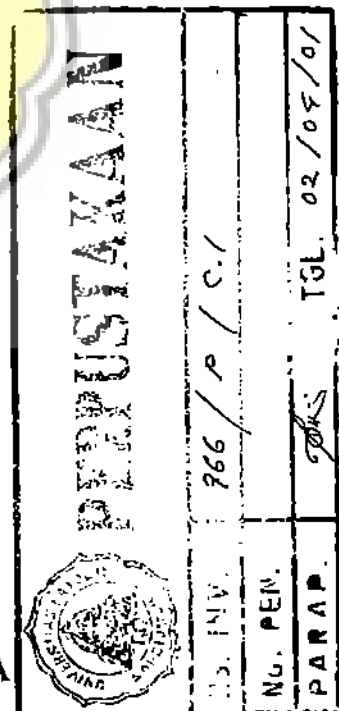 PERPUSTAKAAN
No. INV. 766 / P / C.1
No. PEN.
PARAP. TGL. 02/04/01